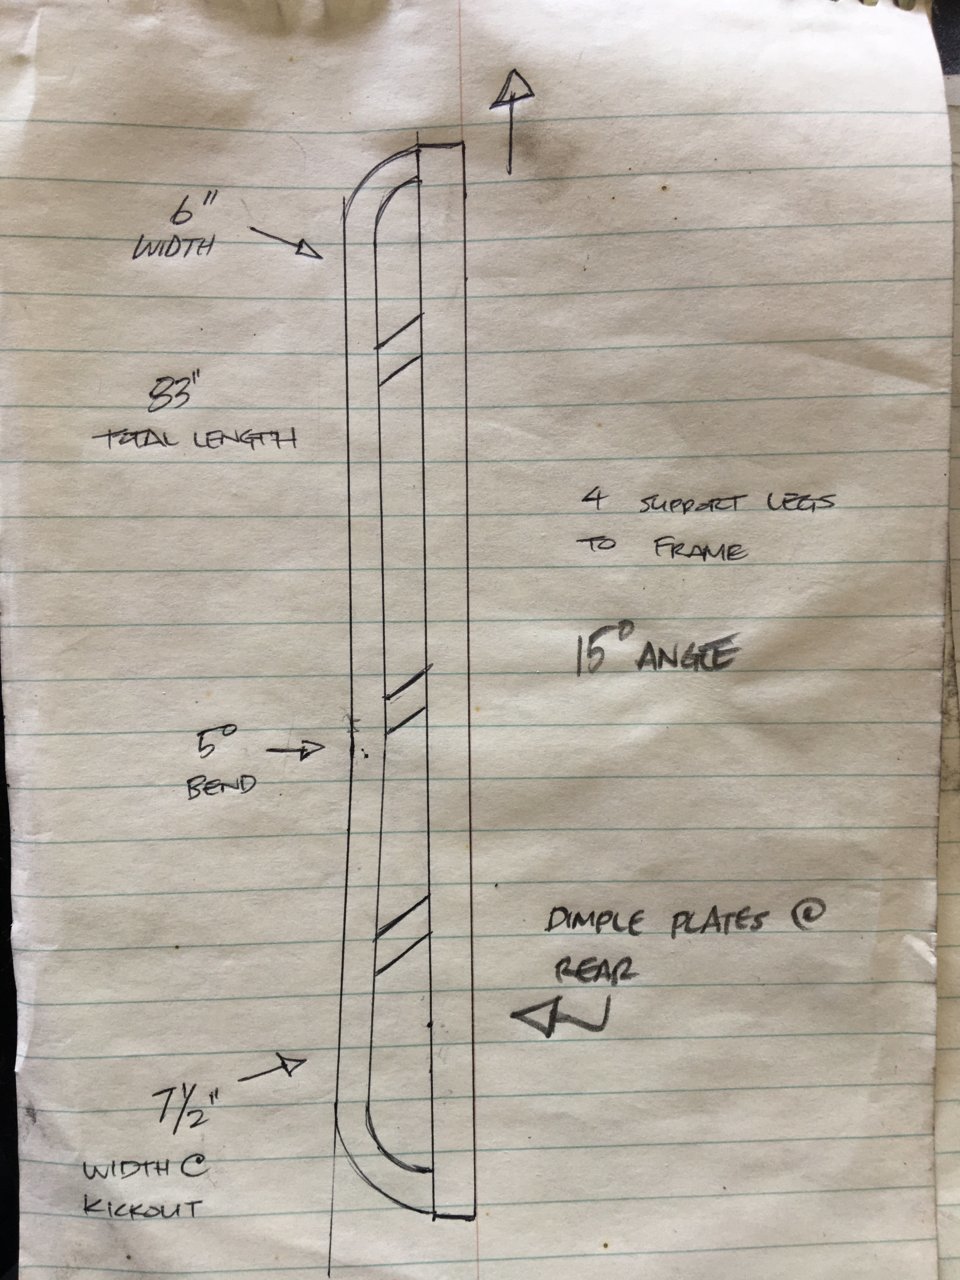 6"
WIDTH
83"
TOTAL LENGTH
4 SUPPORT LEGS
TO FRAME
15° ANGLE
5°
BEND
DIMPLE PLATES @
REAR
7 1/2"
WIDTH @
KICKOUT